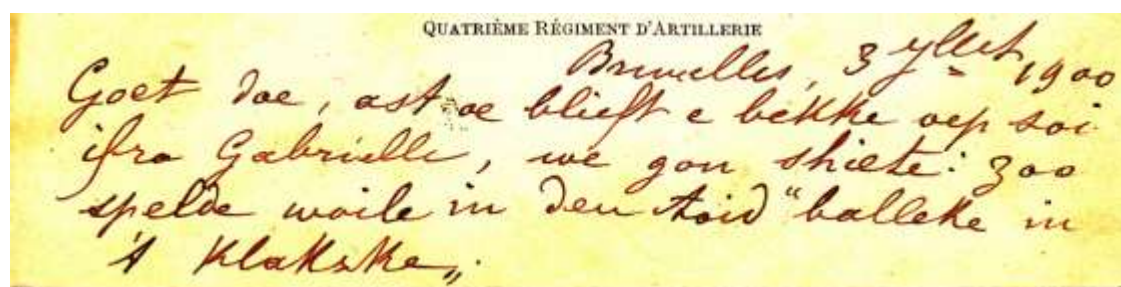 QUATRIÈME RÉGIMENT D'ARTILLERIE
Bruxelles, 3 yllet 1900
Goet doe, ast oe blieft e bekke oep soi
ifra Gabrielle, we gon shiete: zoo
spelde woile in den toid "balleke in
't Klakske„.